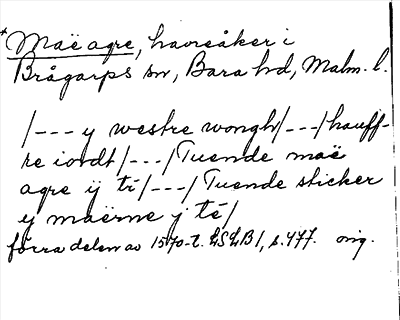 *Maë agre, havreåker i
Brågarps sn, Bara hd, Malm. l.
/--- y westre wongh/---/hauff-
re iordt/---/Tuende maë
agre ij tř/---/Tuende sticker
y maërne j tē/
förra delen av 1570-t. LSLB1, s. 477. orig.